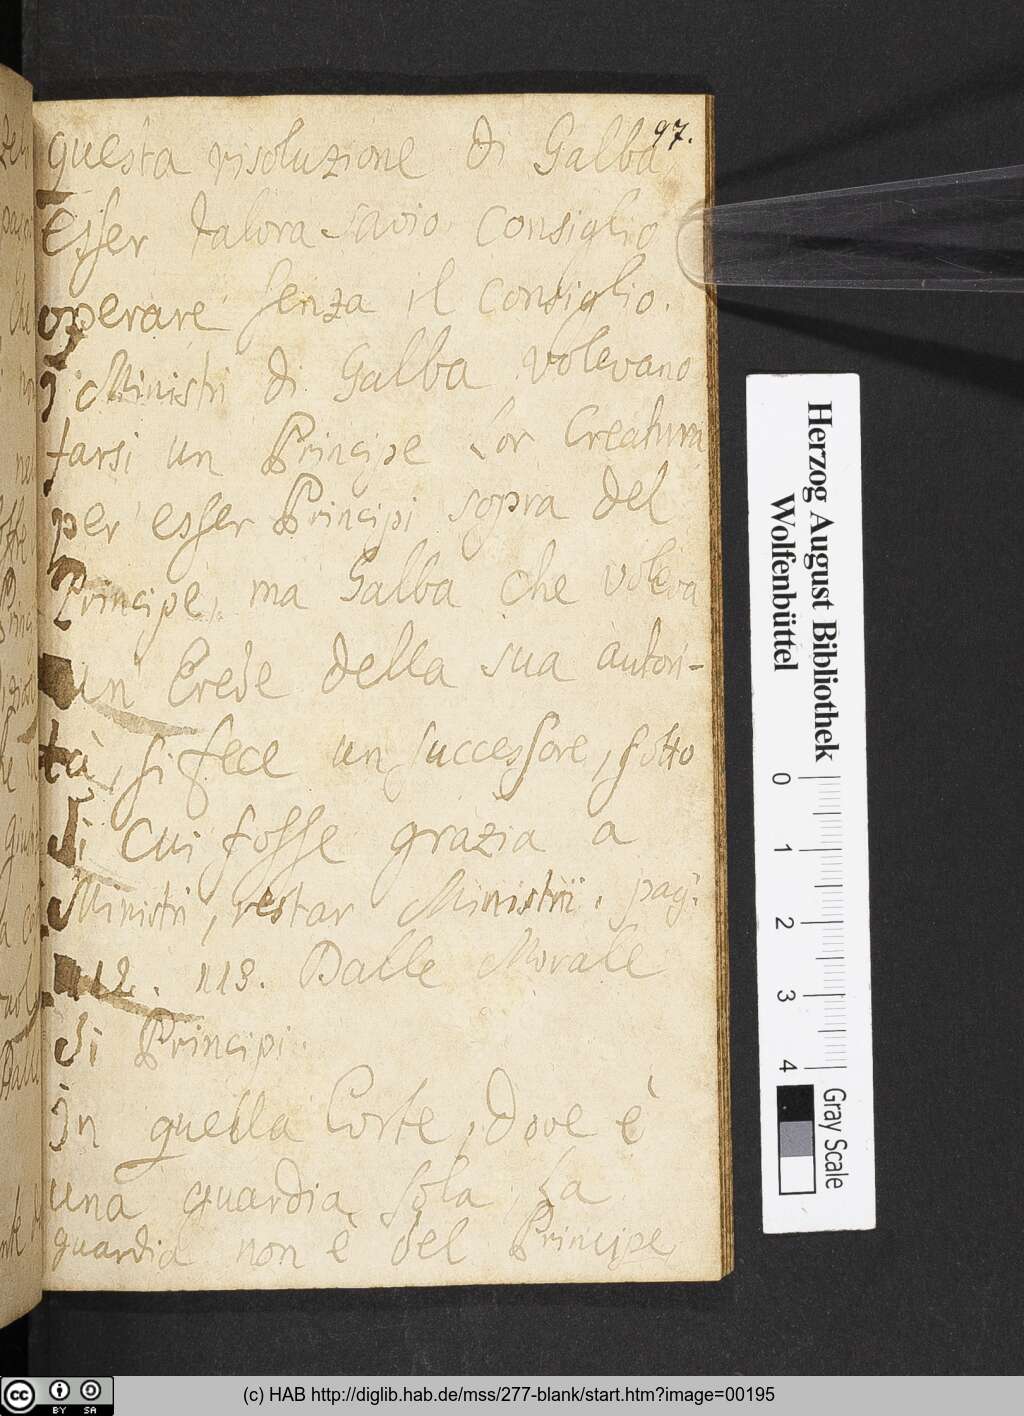 97.
questa risoluzione di Galba
esser talora savio consiglio
operare senza il consiglio.
I Ministri di Galba volevano
farsi un Principe Lor Creatura
per esser Principi sopra del
Principe, ma Galba che voleva
un Erede della sua autori-
tà, si fece un successore, sotto
di cui fosse grazia a
Ministri, restar Ministrii. pag.
112. 118. Dalle Morale
di Principi.
In quella Corte, dove è
una guardia sola, la
guardia non è del Principe,
Herzog August Bibliothek
Wolfenbüttel
0 1 2 3 4
Gray Scale
cc BY SA
(c) HAB http://diglib.hab.de/mss/277-blank/start.htm?image=00195